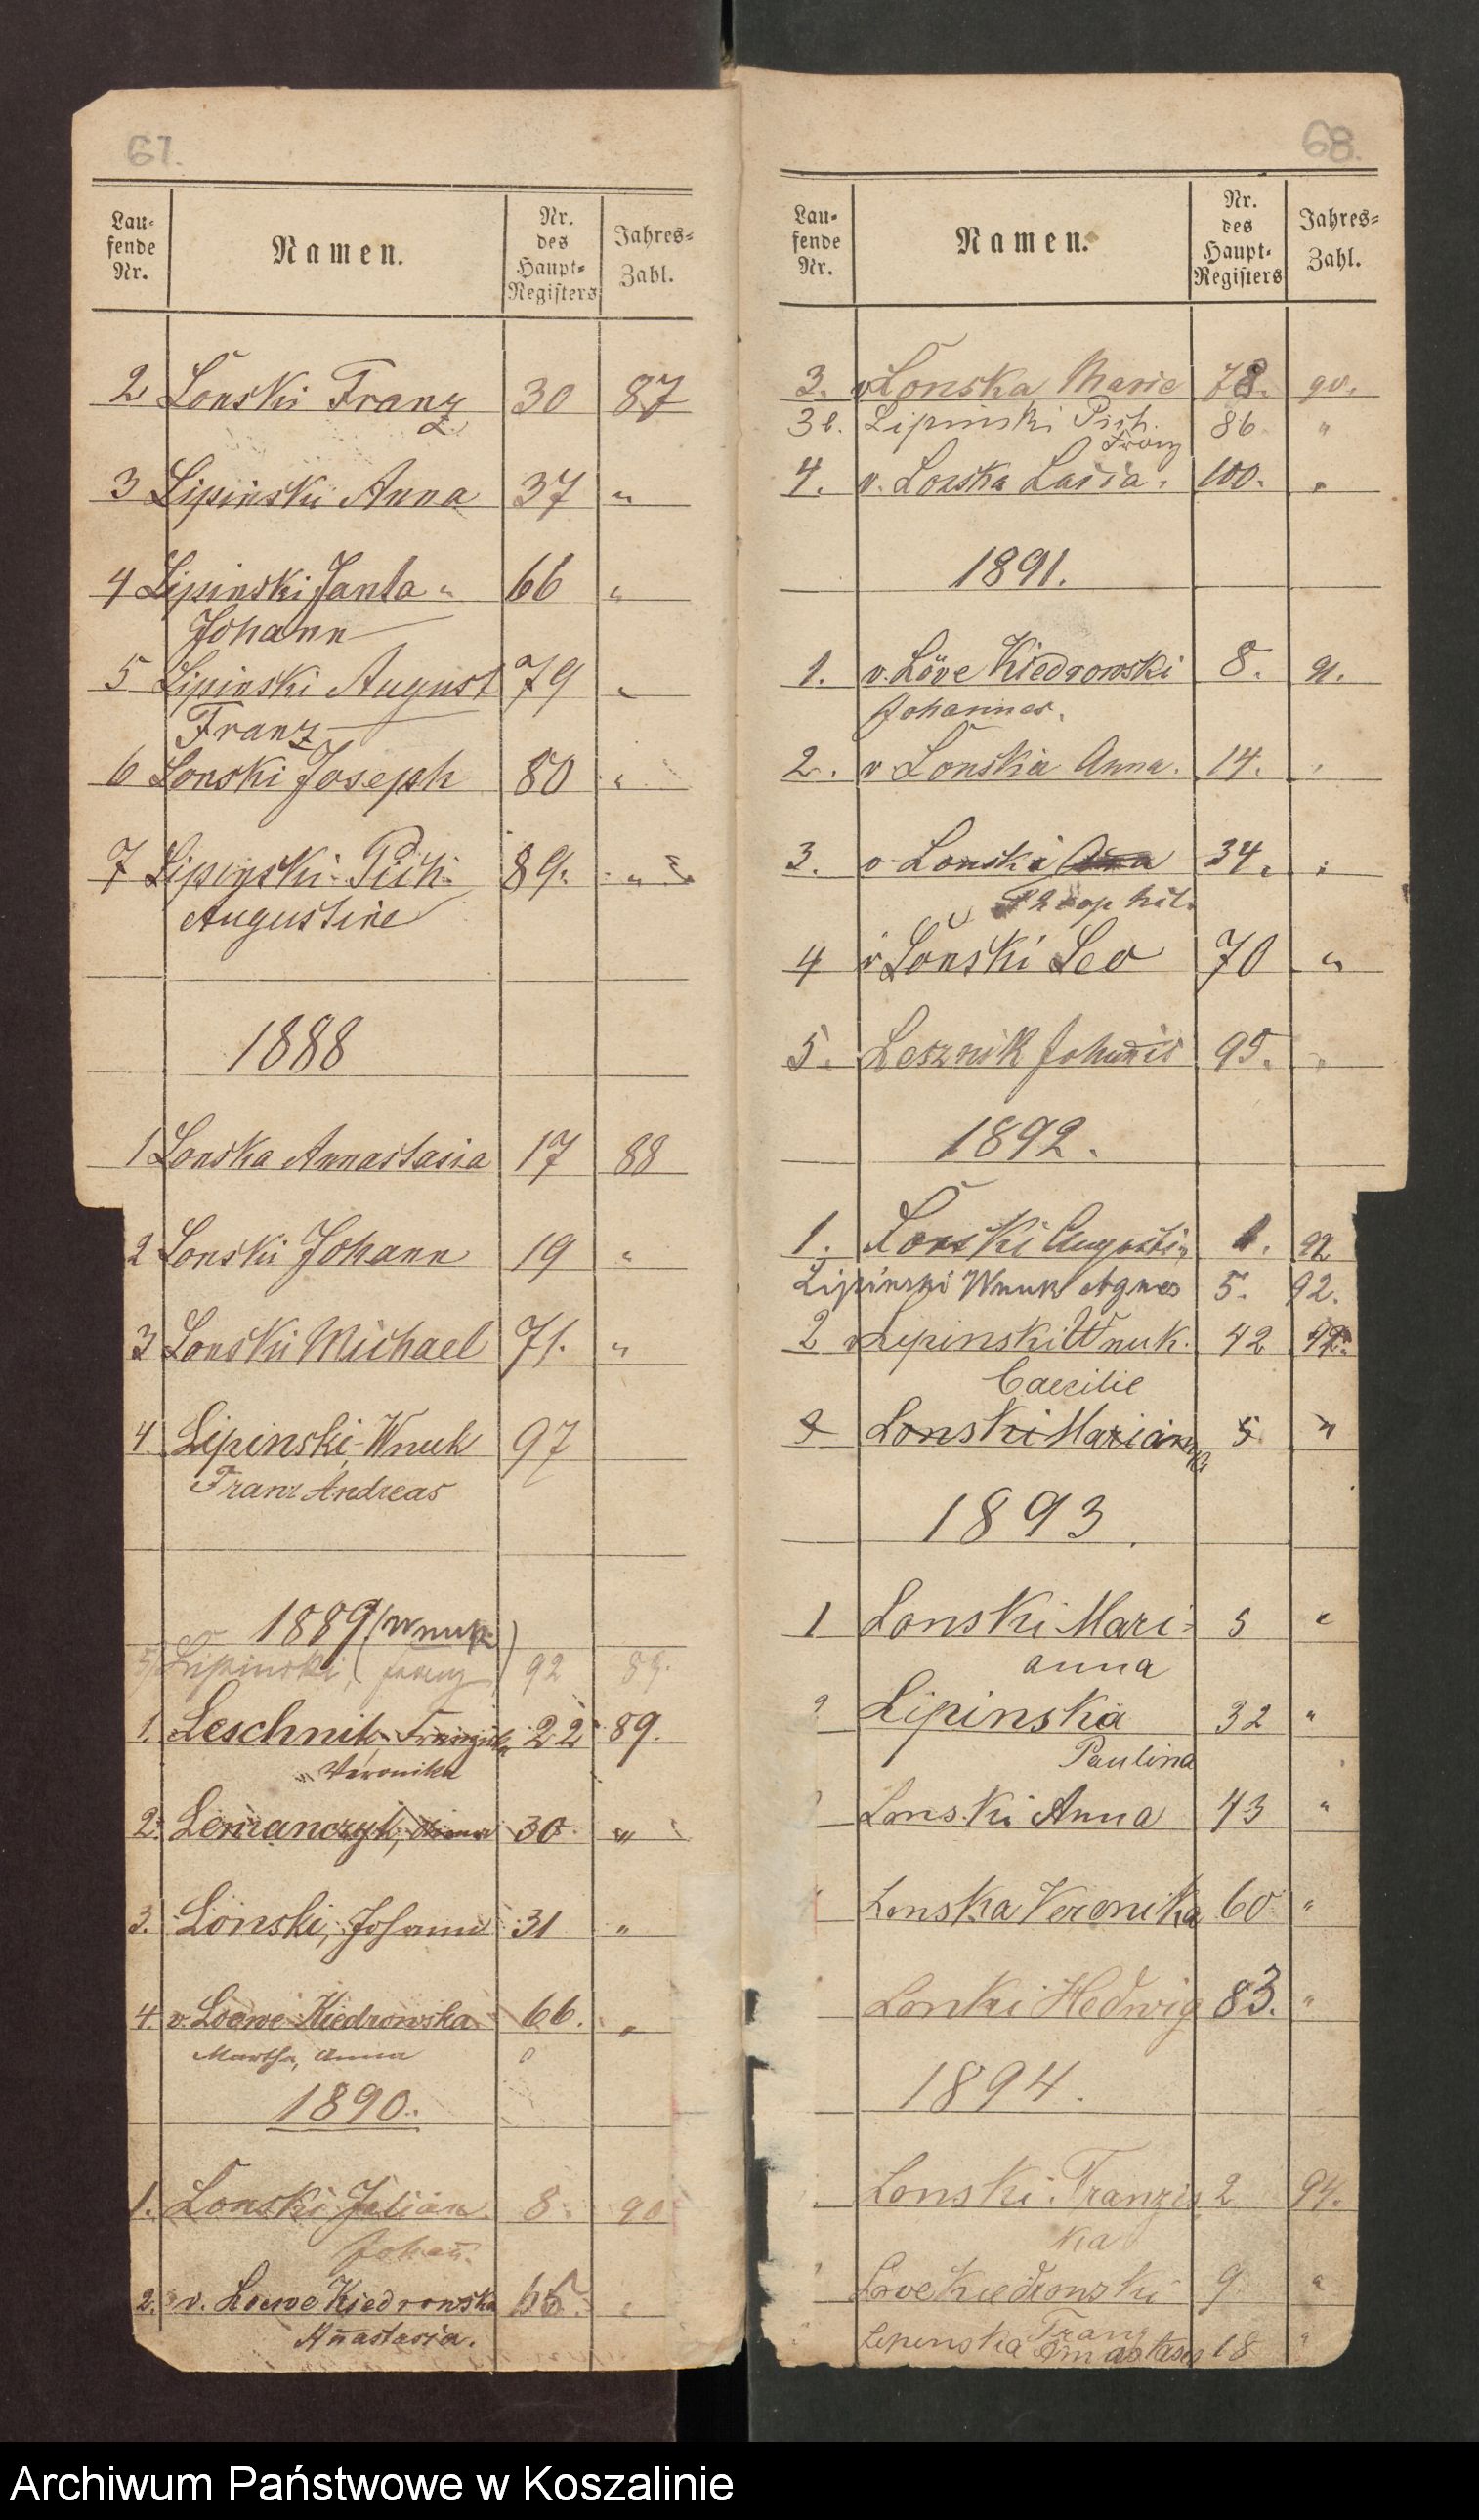 67.
Lau-
fende
Nr.
Namen.
Nr.
des
Haupt-
Registers
Jahres-
Zahl.
2 Lonski Franz 30 87
3 Lipinski Anna 37 "
4 Lipinski Janta- 66 "
Johann
5 Lipinski August 79 "
Franz
6 Lonski Joseph 80 "
7 Lipinski-Pich- 89. "
Augustine
1888
1 Lonska Annastasia 17 88
2 Lonski Johann 19 "
3 Lonski Michael 71. "
4 Lipinski-Wnuk 97
Franz Andreas
1889 (Wnuk)
5 Lipinski, (Franz) 92 89.
1. Leschnik 22 89.
Veronika
2. Lemanczyk, 30 "
3. Lonski, Johann 31 "
4. v. Loewe Kiedrowska 66. "
Martha, Anna
1890.
1. Lonski Julian 8. 90
Johan̄.
2. v. Loewe Kiedrowska 65. "
An̄astasia.
68.
Lau-
fende
Nr.
Namen.
Nr.
des
Haupt-
Registers
Jahres-
Zahl.
3. v Lonska Marie 78. 90.
3b. Lipinski Pich. 86 "
Franz
4. v. Lonska 100. "
1891.
1. v. Löve Kiedrowski 8. 91.
Johannes.
2. v Lonska Anna. 14. "
3. v. Lonski 34. "
Theophil.
4 v Lonski Leo 70 "
5. Lesznik 95. "
1892.
1. Lonski Augustin 1. 92
Lipinski Wnuk Agnes 5. 92.
2 v Lipinski Wnuk. 42 92.
Caecilie
3 Lonski Marianna 5 "
1893.
1 Lonski Mari- 5 "
anna
2 Lipinska 32 "
Paulina
Lonski Anna 43 "
Lonska Veronika 60 "
Lonki Hedwig 83. "
1894.
Lonski Franzis 2 94.
ka
Löve Kiedrowski 9 "
Franz
Lipinska Annastasia 18 "
Archiwum Państwowe w Koszalinie